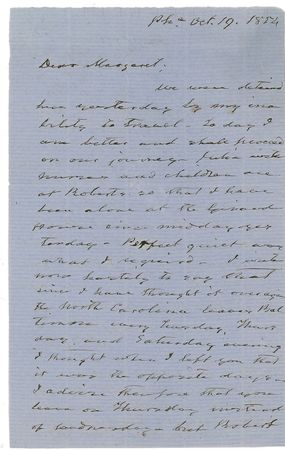 Pha Oct. 19. 1854
Dear Margaret;
We were detained
here yesterday by my ina
bility to travel. To day I
am better and shall proceed
on our journey. with
nurses and children are
at Roberts so that I have
been alone at the Girard
House since midday yes
terday - Perfect quiet was
what I required. I write
now hastily to say that
since I have thought it over
the North Carolina leaves Bal
timore every Tuesday, Thurs
day, and Saturday evening
I thought when I left you that
it was the opposite days
I advise therefore that you
leave on Thursday instead
of Wednesday - but Robert